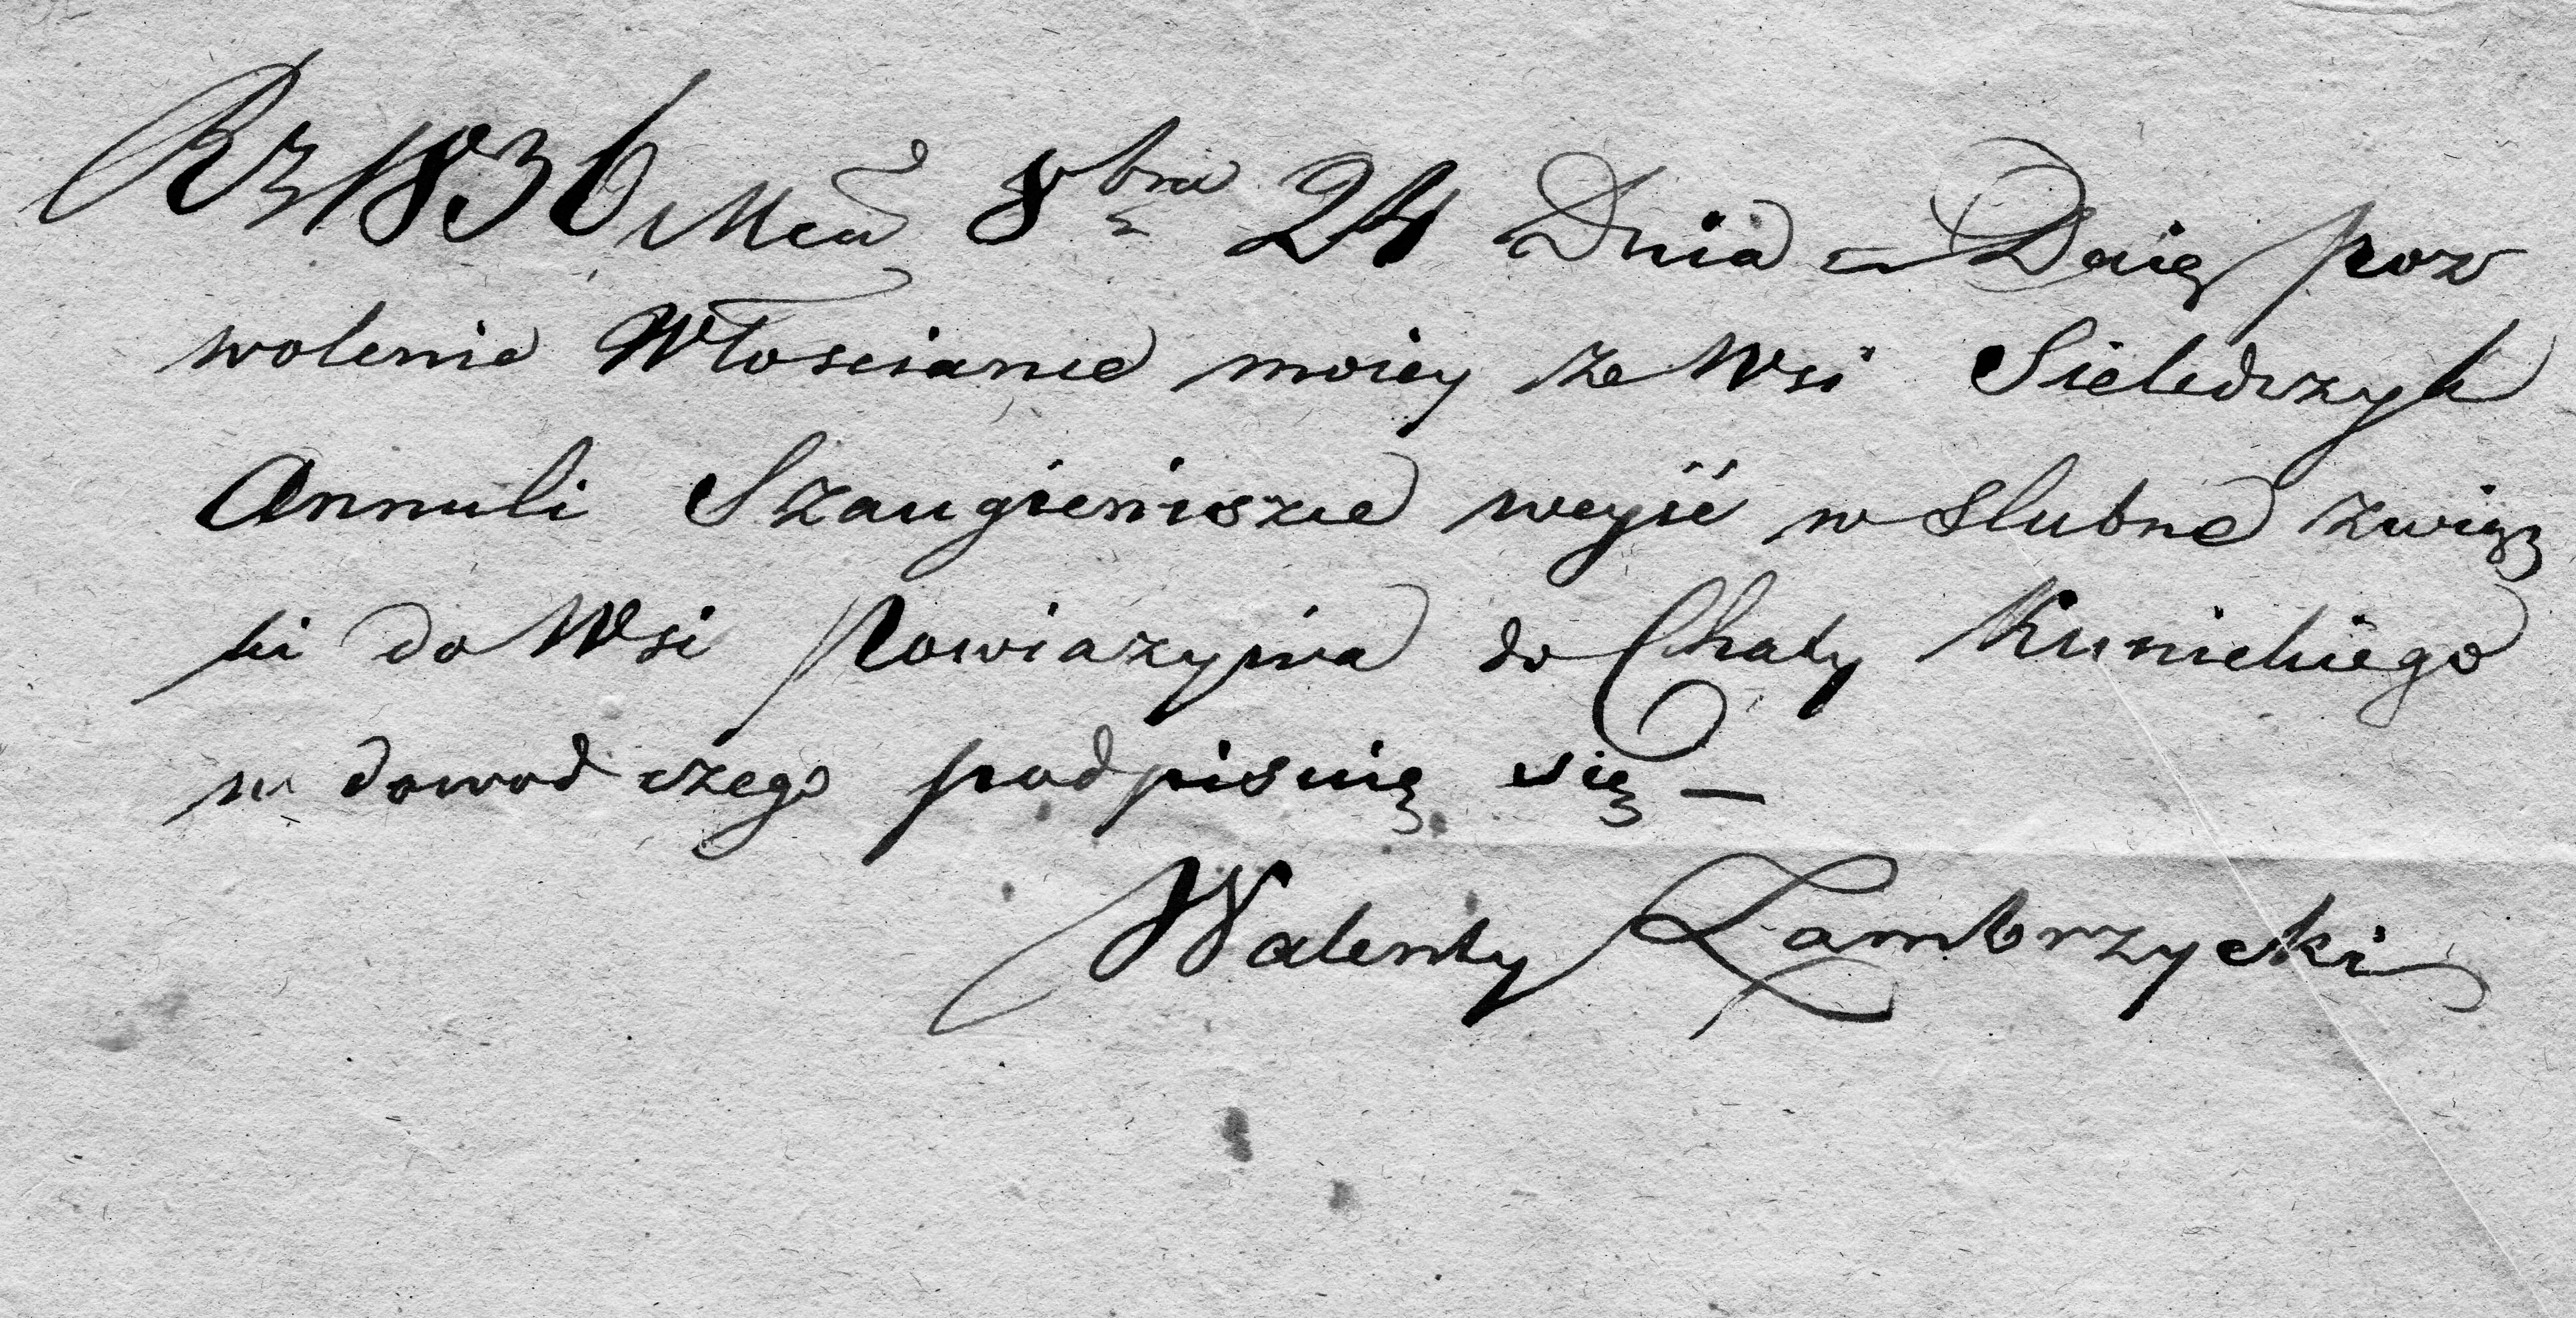 Rz 1836 Mca 8bra 24 Dnia – Daię poz
wolenie Włoscianie moiey ze Wsi Sieledczyk
Annuli Szaugieniszie weyść w slubne związ
ki do Wsi Powiazynia do Chaty Kunickiego
w dowod czego podpisuię się –
Walenty Zambrzycki